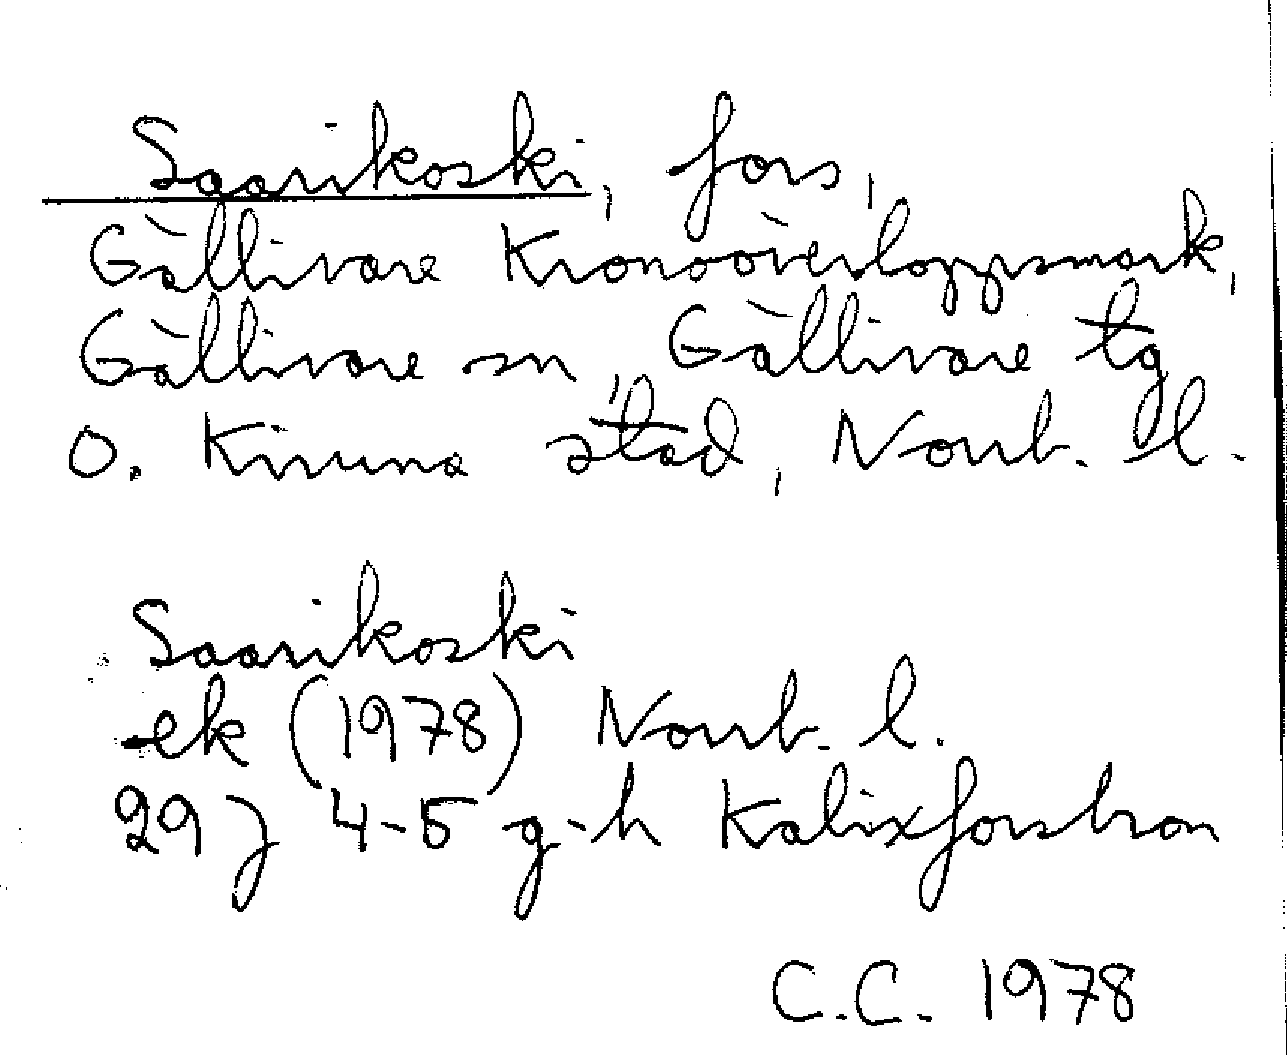 Saarikoski, fors,
Gällivare Kronoöverloppsmark,
Gällivare sn, Gällivare tg
o. Kiruna stad, Norrb. ll.
Saarikoski
ek (1978) Norrb. l.
29 J 4-5 g-h Kalixforsbron
C.C. 1978